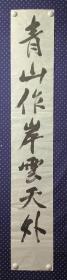 青山作岸雲天外